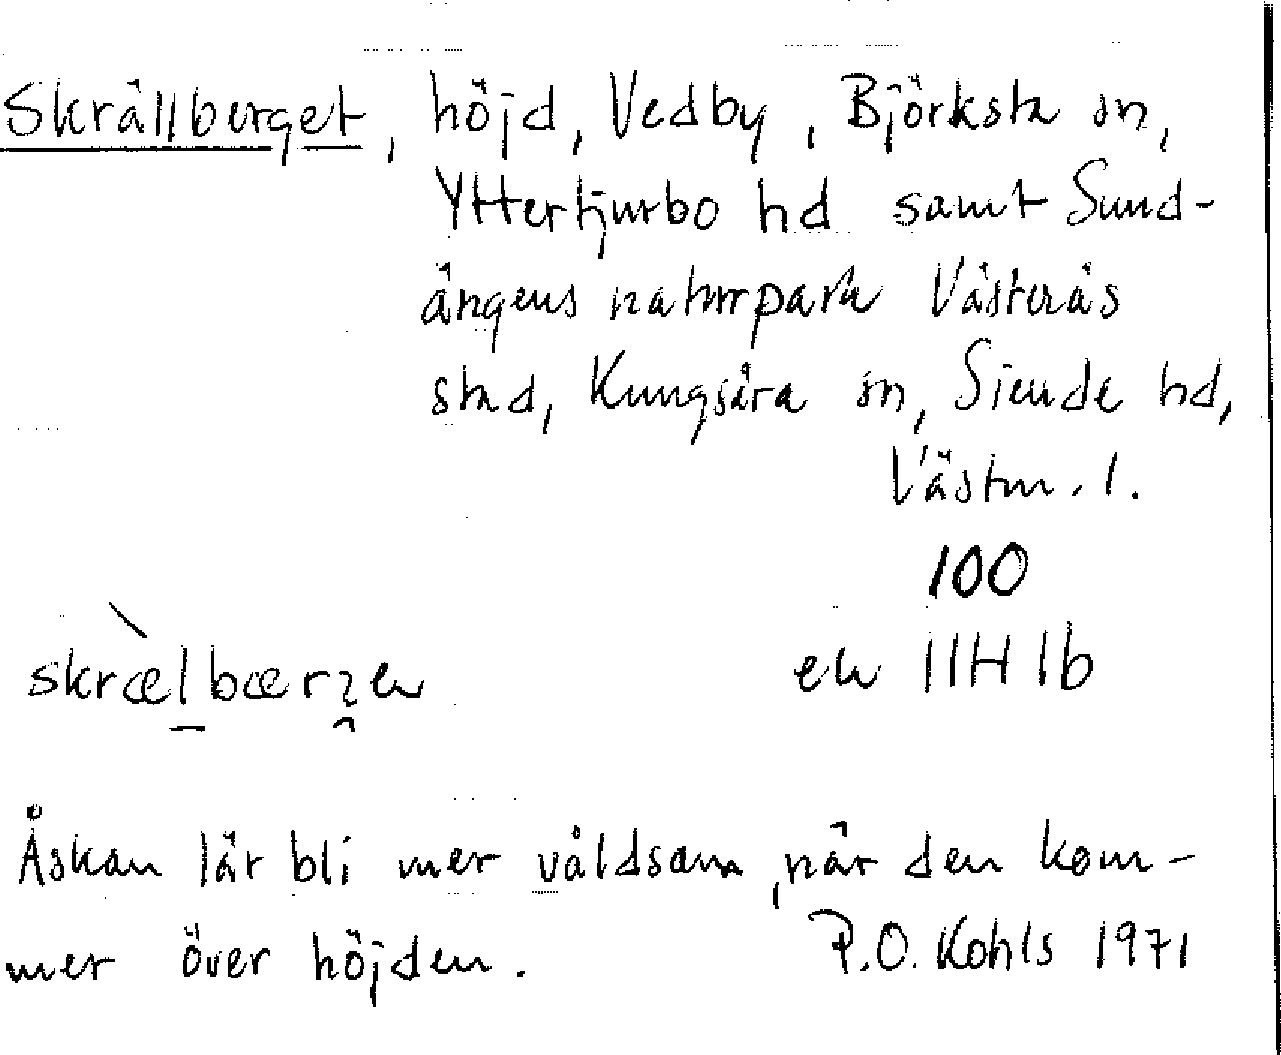 Skrällberget, höjd, Vedby, Björksta sn,
Yttertjurbo hd samt Sund-
ängens naturpark Västerås
stad, Kungsåra sn, Siende hd,
Västm. l.
100
ek 11H 1b
Åskan lär bli mer våldsam, när den kom-
mer över höjden. P.O. Kohls 1971